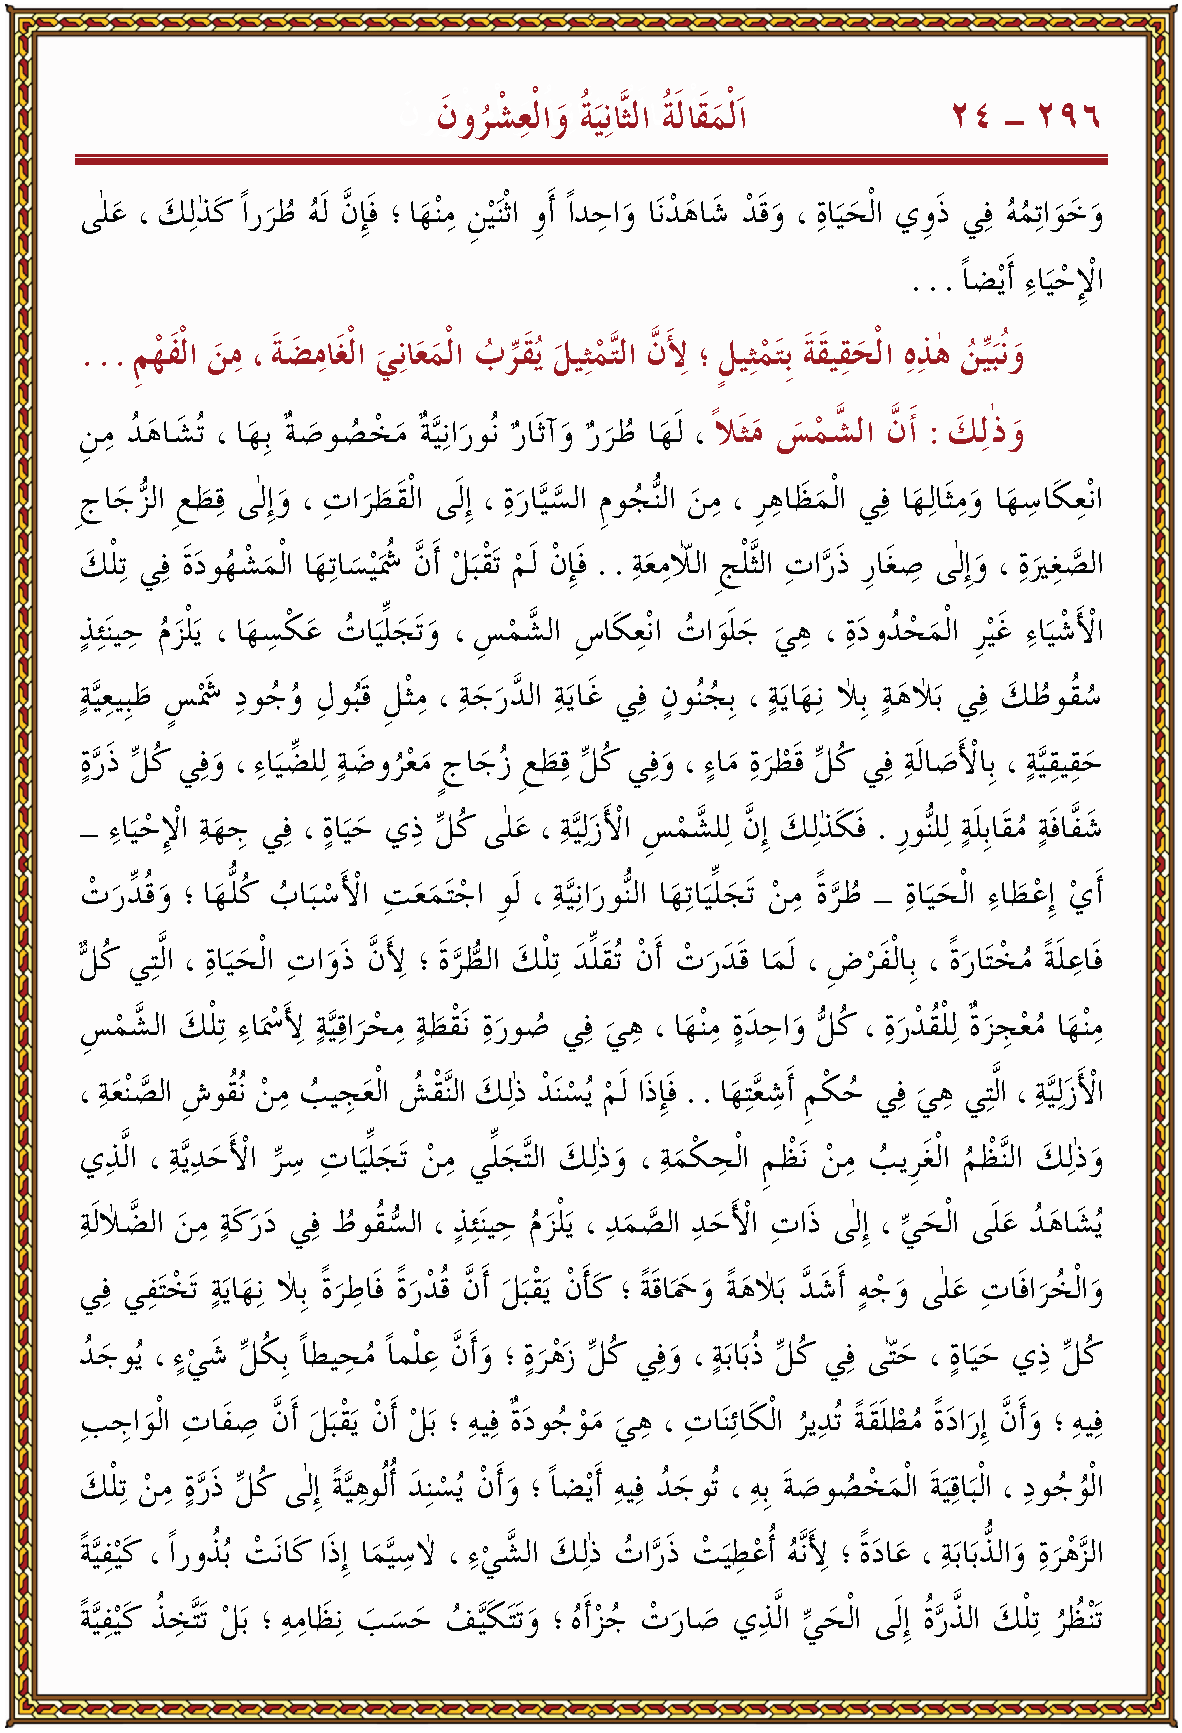 ٢٩٦ – ٢٤ اَلْمَقَالَةُ الثَّانِيَةُ وَالْعِشْرُونَ
وَخَوَاتِمُهُ فِي ذَوِي الْحَيَاةِ ، وَقَدْ شَاهَدْنَا وَاحِداً أَوِ اثْنَيْنِ مِنْهَا ؛ فَإِنَّ لَهُ طُرَراً كَذٰلِكَ ، عَلٰى
الْإِحْيَاءِ أَيْضاً . . .
وَنُبَيِّنُ هٰذِهِ الْحَقِيقَةَ بِتَمْثِيلٍ ؛ لِأَنَّ التَّمْثِيلَ يُقَرِّبُ الْمَعَانِيَ الْغَامِضَةَ ، مِنَ الْفَهْمِ . . .
وَذٰلِكَ : أَنَّ الشَّمْسَ مَثَلاً ، لَهَا طُرَرٌ وَآثَارٌ نُورَانِيَّةٌ مَخْصُوصَةٌ بِهَا ، تُشَاهَدُ مِنِ
انْعِكَاسِهَا وَمِثَالِهَا فِي الْمَظَاهِرِ ، مِنَ النُّجُومِ السَّيَّارَةِ ، إِلَى الْقَطَرَاتِ ، وَإِلٰى قِطَعِ الزُّجَاجِ
الصَّغِيرَةِ ، وَإِلٰى صِغَارِ ذَرَّاتِ الثَّلْجِ اللَّامِعَةِ . . فَإِنْ لَمْ تَقْبَلْ أَنَّ شُمَيْسَاتِهَا الْمَشْهُودَةَ فِي تِلْكَ
الْأَشْيَاءِ غَيْرِ الْمَحْدُودَةِ ، هِيَ جَلَوَاتُ انْعِكَاسِ الشَّمْسِ ، وَتَجَلِّيَاتُ عَكْسِهَا ، يَلْزَمُ حِينَئِذٍ
سُقُوطُكَ فِي بَلَاهَةٍ بِلَا نِهَايَةٍ ، بِجُنُونٍ فِي غَايَةِ الدَّرَجَةِ ، مِثْلِ قُبُولِ وُجُودِ شَمْسٍ طَبِيعِيَّةٍ
حَقِيقِيَّةٍ ، بِالْأَصَالَةِ فِي كُلِّ قَطْرَةِ مَاءٍ ، وَفِي كُلِّ قِطَعِ زُجَاجٍ مَعْرُوضَةٍ لِلضِّيَاءِ ، وَفِي كُلِّ ذَرَّةٍ
شَفَّافَةٍ مُقَابِلَةٍ لِلنُّورِ . فَكَذٰلِكَ إِنَّ لِلشَّمْسِ الْأَزَلِيَّةِ ، عَلٰى كُلِّ ذِي حَيَاةٍ ، فِي جِهَةِ الْإِحْيَاءِ –
أَيْ إِعْطَاءِ الْحَيَاةِ – طُرَّةً مِنْ تَجَلِّيَاتِهَا النُّورَانِيَّةِ ، لَوِ اجْتَمَعَتِ الْأَسْبَابُ كُلُّهَا ؛ وَقُدِّرَتْ
فَاعِلَةً مُخْتَارَةً ، بِالْفَرْضِ ، لَمَا قَدَرَتْ أَنْ تُقَلِّدَ تِلْكَ الطُّرَّةَ ؛ لِأَنَّ ذَوَاتِ الْحَيَاةِ ، الَّتِي كُلٌّ
مِنْهَا مُعْجِزَةٌ لِلْقُدْرَةِ ، كُلُّ وَاحِدَةٍ مِنْهَا ، هِيَ فِي صُورَةِ نَقْطَةٍ مِحْرَاقِيَّةٍ لِأَسْمَاءِ تِلْكَ الشَّمْسِ
الْأَزَلِيَّةِ ، الَّتِي هِيَ فِي حُكْمِ أَشِعَّتِهَا . . فَإِذَا لَمْ يُسْنَدْ ذٰلِكَ النَّقْشُ الْعَجِيبُ مِنْ نُقُوشِ الصَّنْعَةِ ،
وَذٰلِكَ النَّظْمُ الْغَرِيبُ مِنْ نَظْمِ الْحِكْمَةِ ، وَذٰلِكَ التَّجَلِّي مِنْ تَجَلِّيَاتِ سِرِّ الْأَحَدِيَّةِ ، الَّذِي
يُشَاهَدُ عَلَى الْحَيِّ ، إِلٰى ذَاتِ الْأَحَدِ الصَّمَدِ ، يَلْزَمُ حِينَئِذٍ ، السُّقُوطُ فِي دَرَكَةٍ مِنَ الضَّلَالَةِ
وَالْخُرَافَاتِ عَلٰى وَجْهٍ أَشَدَّ بَلَاهَةً وَحَمَاقَةً ؛ كَأَنْ يَقْبَلَ أَنَّ قُدْرَةً فَاطِرَةً بِلَا نِهَايَةٍ تَخْتَفِي فِي
كُلِّ ذِي حَيَاةٍ ، حَتّٰى فِي كُلِّ ذُبَابَةٍ ، وَفِي كُلِّ زَهْرَةٍ ؛ وَأَنَّ عِلْماً مُحِيطاً بِكُلِّ شَيْءٍ ، يُوجَدُ
فِيهِ ؛ وَأَنَّ إِرَادَةً مُطْلَقَةً تُدِيرُ الْكَائِنَاتِ ، هِيَ مَوْجُودَةٌ فِيهِ ؛ بَلْ أَنْ يَقْبَلَ أَنَّ صِفَاتِ الْوَاجِبِ
الْوُجُودِ ، الْبَاقِيَةَ الْمَخْصُوصَةَ بِهِ ، تُوجَدُ فِيهِ أَيْضاً ؛ وَأَنْ يُسْنِدَ أُلُوهِيَّةً إِلٰى كُلِّ ذَرَّةٍ مِنْ تِلْكَ
الزَّهْرَةِ وَالذُّبَابَةِ ، عَادَةً ؛ لِأَنَّهُ أُعْطِيَتْ ذَرَّاتُ ذٰلِكَ الشَّيْءِ ، لَاسِيَّمَا إِذَا كَانَتْ بُذُوراً ، كَيْفِيَّةً
تَنْظُرُ تِلْكَ الذَّرَّةُ إِلَى الْحَيِّ الَّذِي صَارَتْ جُزْأَهُ ؛ وَتَتَكَيَّفُ حَسَبَ نِظَامِهِ ؛ بَلْ تَتَّخِذُ كَيْفِيَّةً